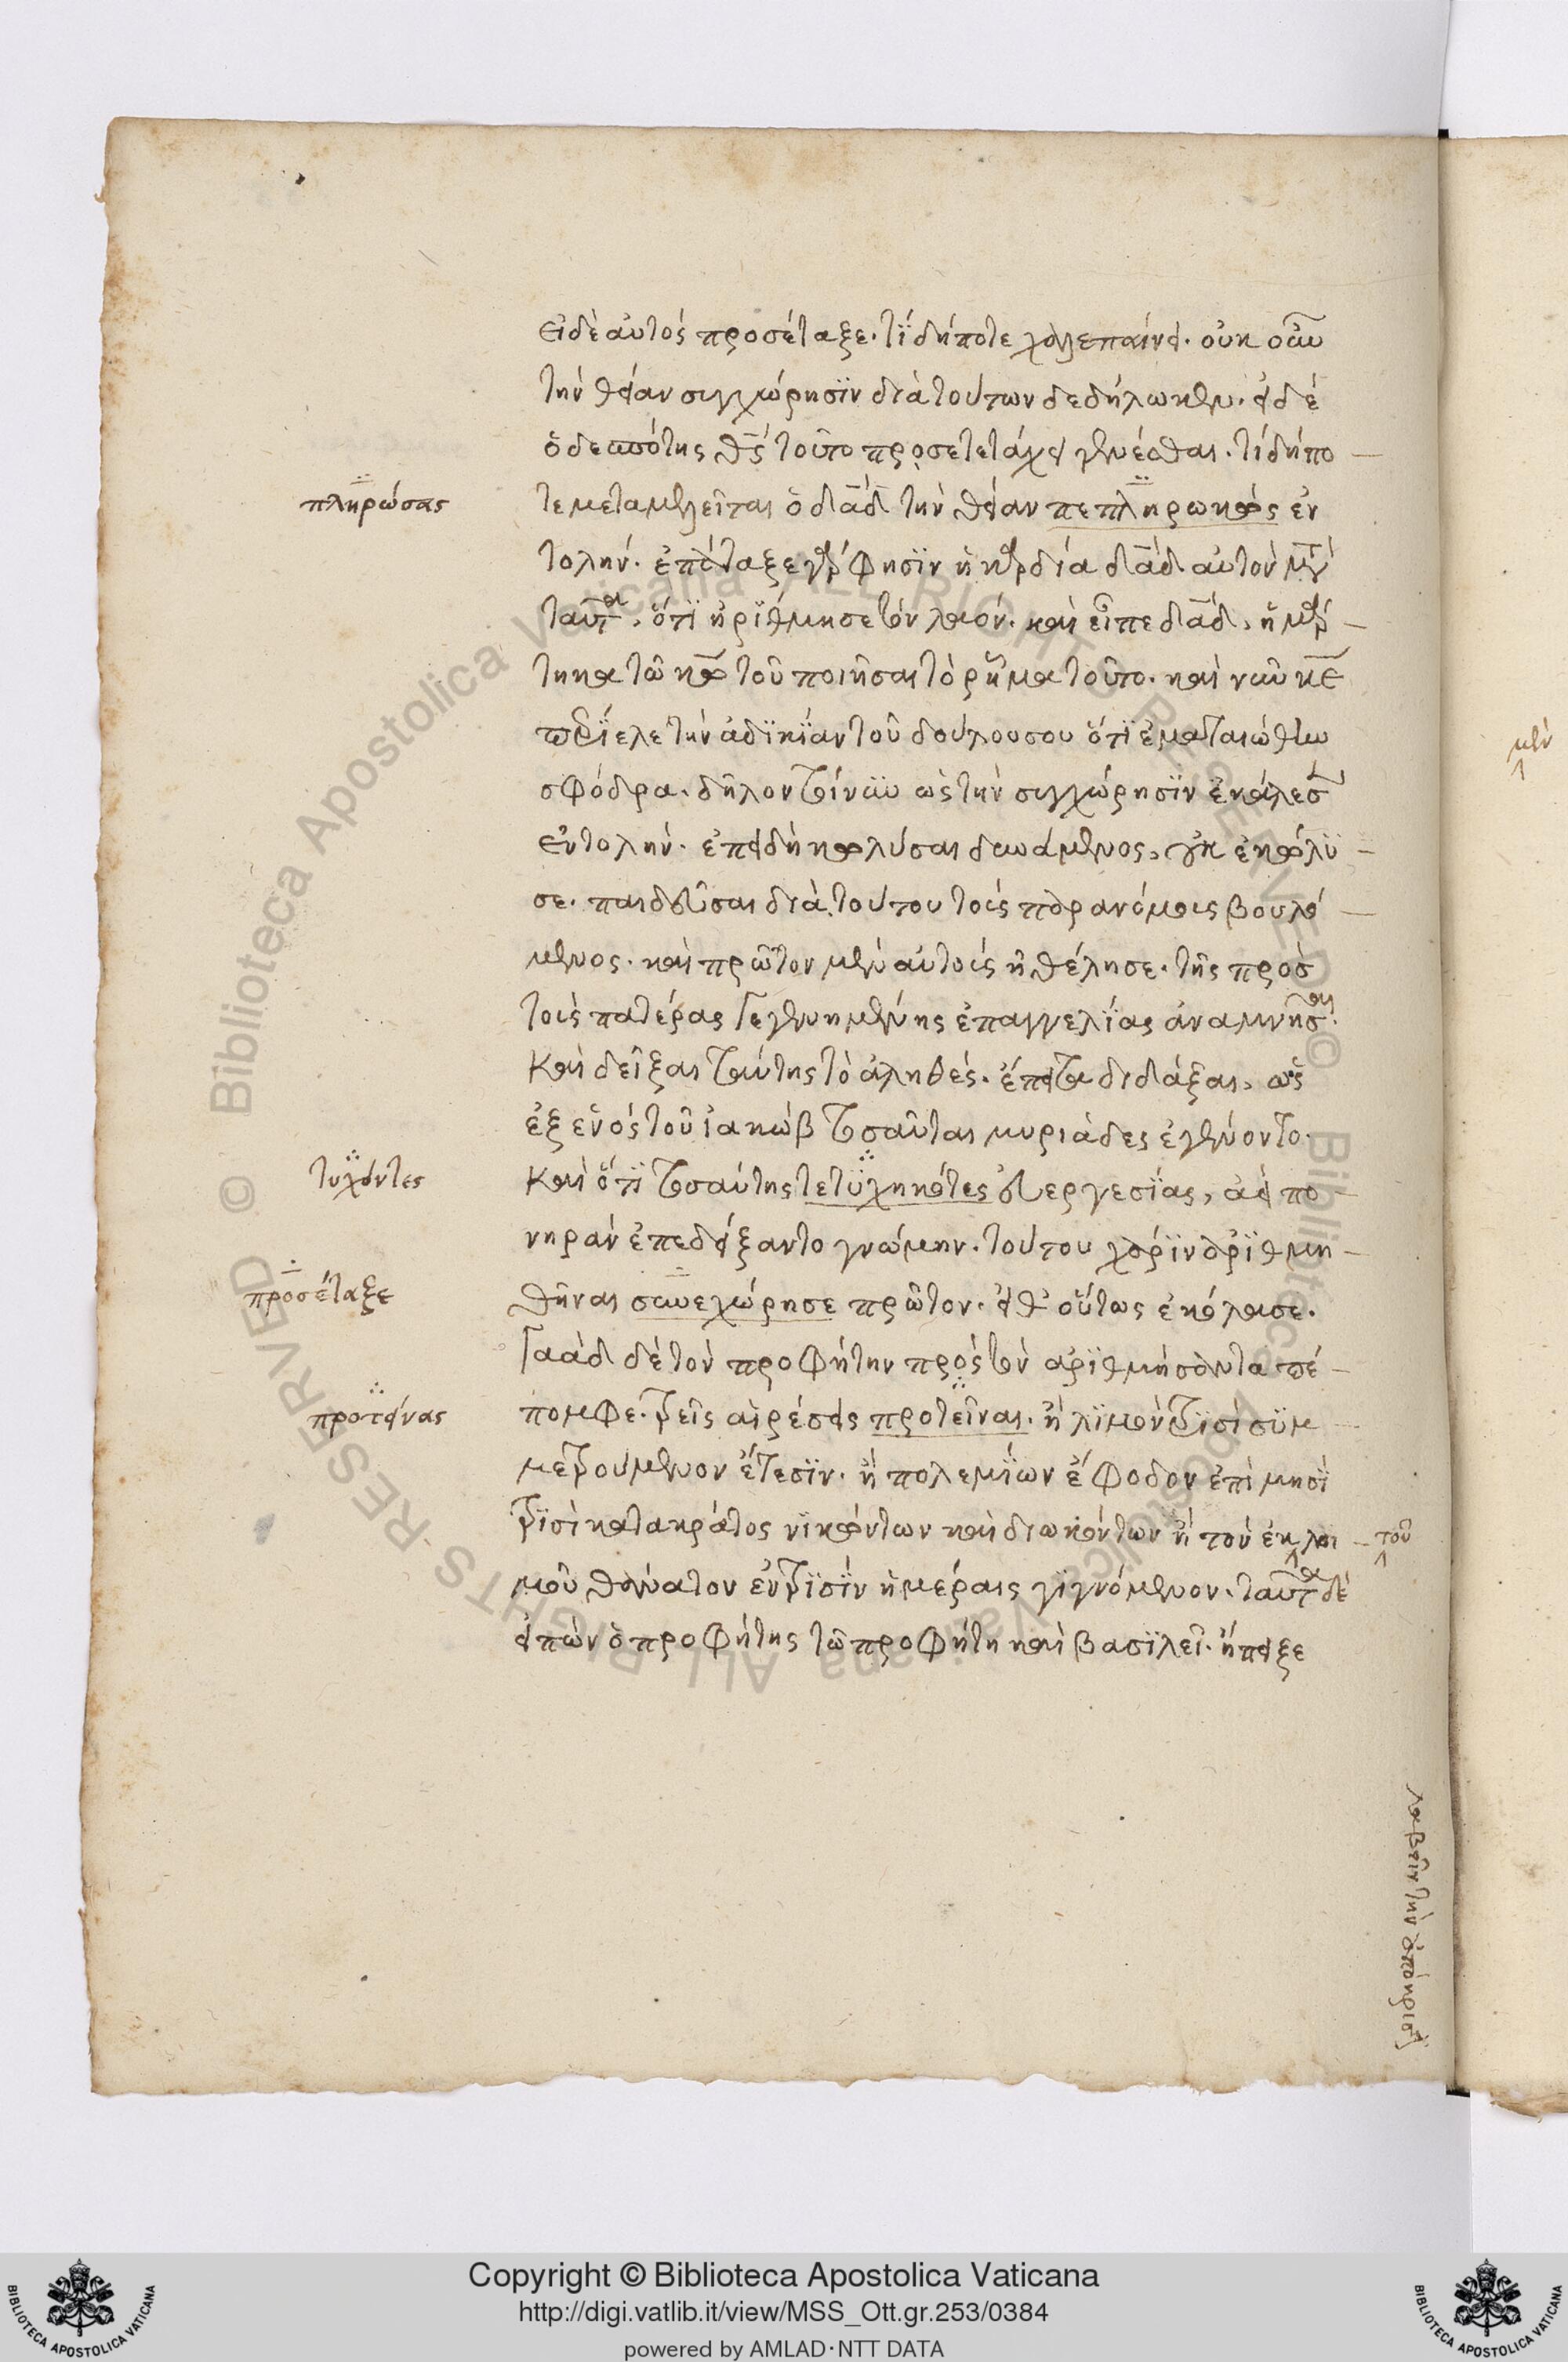 εἰ δὲ αὐτὸς προσέταξε. τί δήποτε χαλεπαίνει. οὐκ οὖν
τὴν θείαν συγχώρησιν διὰ τούτων δεδήλωκεν. εἰ δὲ
ὁ δεσπότης θς τοῦτο προσετετάχει γενέσθαι. τί δήπο
πληρώσας
τε μεταμελεῖται ὁ δαδ τὴν θείαν πεπληρωκὼς ἐν
τολήν. ἐπάταξε γάρ φησιν ἡ καρδία δαδ αὐτὸν μετὰ
ταῦτα, ὅτι ἠρίθμησε τὸν λαόν. καὶ εἶπε δαδ, ἡμάρ
τηκα τῶ κω τοῦ ποιῆσαι τὸ ρῆμα τοῦτο. καὶ νῦν κε
περίελε τὴν ἀδικίαν τοῦ δούλου σου ὅτι ἐματαιώθην
σφόδρα. δῆλον τοίνυν ὡς τὴν συγχώρησιν ἐκάλεσεν
ἐντολήν. ἐπειδὴ κωλύσαι δυνάμενος, οὐκ ἐκώλυ
σε. παιδεῦσαι διὰ τούτου τοὺς παρανόμους βουλό
μενος. καὶ πρῶτον μὲν αὐτοὺς ἠθέλησε. τῆς πρὸς
τοὺς πατέρας γεγενημένης ἐπαγγελίας ἀναμνῆσαι.
καὶ δεῖξαι ταύτης τὸ ἀληθές. ἔπειτα διδάξαι, ὡς
ἐξ ἑνὸς τοῦ ἰακὼβ τοσαῦται μυριάδες ἐγένοντο.
τυχόντες
καὶ ὅτι τοσαύτης τετυχηκότες εὐεργεσίας, ἀεὶ πο
νηρὰν ἐπεδείξαντο γνώμην. τούτου χάριν ἀριθμη
προσέταξε
θῆναι συνεχώρησε πρῶτον. εἶθ' οὕτως ἐκόλασε.
Γαὰδ δὲ τὸν προφήτην πρὸς τὸν ἀριθμήσαντα πέ
προτείνας
πομφε. τρεῖς αἱρέσεις προτεῖναι. ἢ λιμὸν τρισὶ συμ
μετρούμενον ἔτεσιν. ἢ πολεμίων ἔφοδον ἐπὶ μησὶ
τρισὶ κατακράτος νικώντων καὶ διωκόντων ἢ τὸν ἐκ λοι
τοῦ
μοῦ θάνατον ἐν τρισὶν ἡμέραις γιγνόμενον. ταῦτα δὲ
εἰπὼν ὁ προφήτης τῶ προφήτη καὶ βασιλεῖ. ἤπειξε
λαβεῖν τὴν ἀπόκρισιν
μὲν
Copyright © Biblioteca Apostolica Vaticana
http://digi.vatlib.it/view/MSS_Ott.gr.253/0384
powered by AMLAD·NTT DATA
BIBLIOTECA APOSTOLICA VATICANA
BIBLIOTECA APOSTOLICA VATICANA
© Biblioteca Apostolica Vaticana ALL RIGHTS RESERVED
© Biblioteca Apostolica Vaticana ALL RIGHTS RESERVED